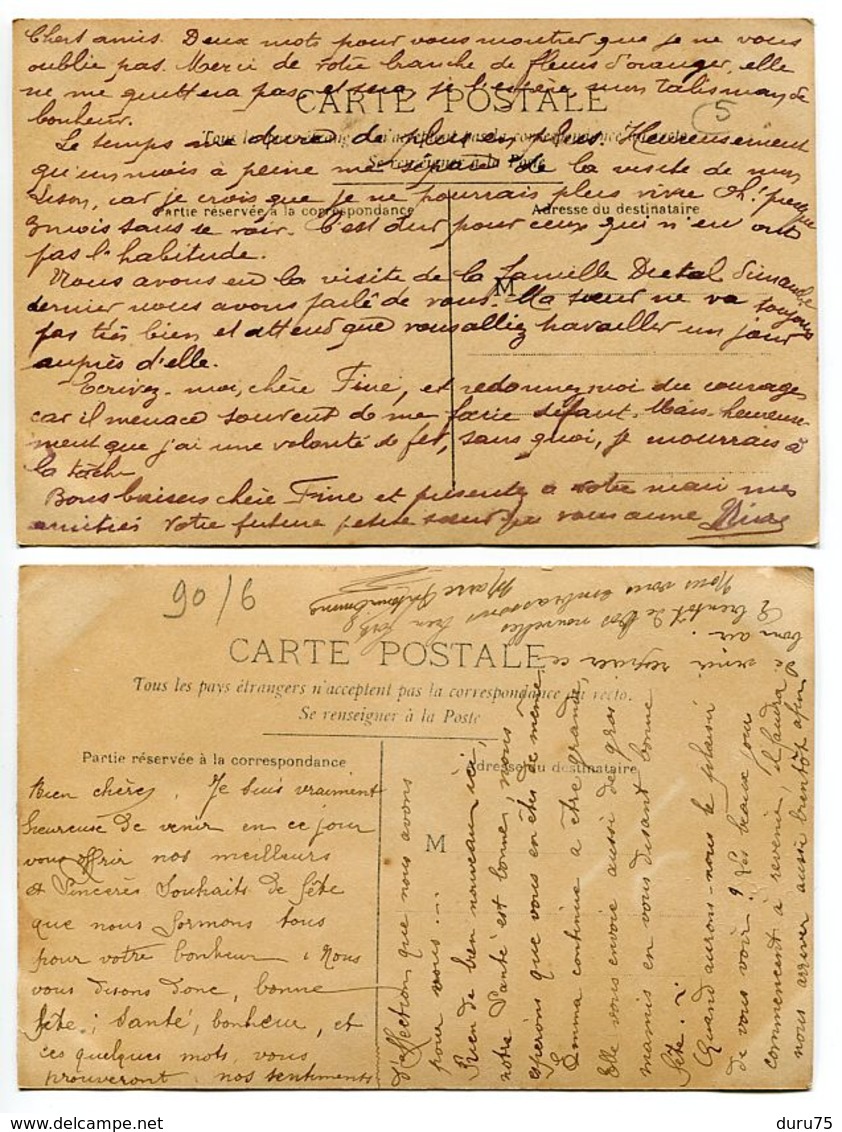 Chers amis. Deux mots pour vous montrer que je ne vous
oublie pas. Merci de votre branche de fleurs d'oranger, elle
ne me quittera pas et sera, je l'espère, mon talisman de
bonheur.
CARTE POSTALE
5
Le temps me dure de plus en plus. Heureusement
qu'un mois à peine me sépare de la visite de mon
car je crois que je ne pourrais plus vivre Oh! presque
3 mois sans le voir. C'est dur pour ceux qui n'en ont
pas l'habitude.
Tous les pays étrangers n'acceptent pas la correspondance au recto.
Se renseigner à la Poste
Partie réservée à la correspondance
Adresse du destinataire
M
Nous avons eu la visite de la famille dimanche
dernier nous avons parlé de vous. Ma sœur ne va toujours
pas très bien et attend que vous alliez travailler un jour
auprès d'elle.
Ecrivez-moi, chère Fine, et redonnez moi du courage
car il menace souvent de me faire défaut. Mais heureuse-
ment que j'ai une volonté de fer, sans quoi, je mourrais à
la tâche
Bons baisers chère Fine et présentez à votre mari mes
amitiés Votre future petite sœur qui vous aime
90/6
CARTE POSTALE
Tous les pays étrangers n'acceptent pas la correspondance au recto.
Se renseigner à la Poste
Partie réservée à la correspondance
Adresse du destinataire
M
Bien chère, Je suis vraiment
heureuse de venir en ce jour
vous offrir nos meilleurs
et sincères souhaits de fête
que nous formons tous
pour votre bonheur. Nous
vous disons donc, bonne
fête; santé, bonheur, et
ces quelques mots, vous
prouveront nos sentiments
d'affection que nous avons
pour vous...
Rien de bien nouveau ici,
notre santé est bonne, nous
espérons que vous en êtes de même
Emma continue a être grande,
Elle vous envoie aussi de gros
mamis en vous disant bonne
fête.
Quand aurons-nous le plaisir
de vous voir? Les beaux jours
commencent à revenir, il faudra
nous arriver aussi bientôt afin
de venir respirer ce
bon air.
A bientôt de vos nouvelles
Nous vous embrassons bien fort
Marie
duru75